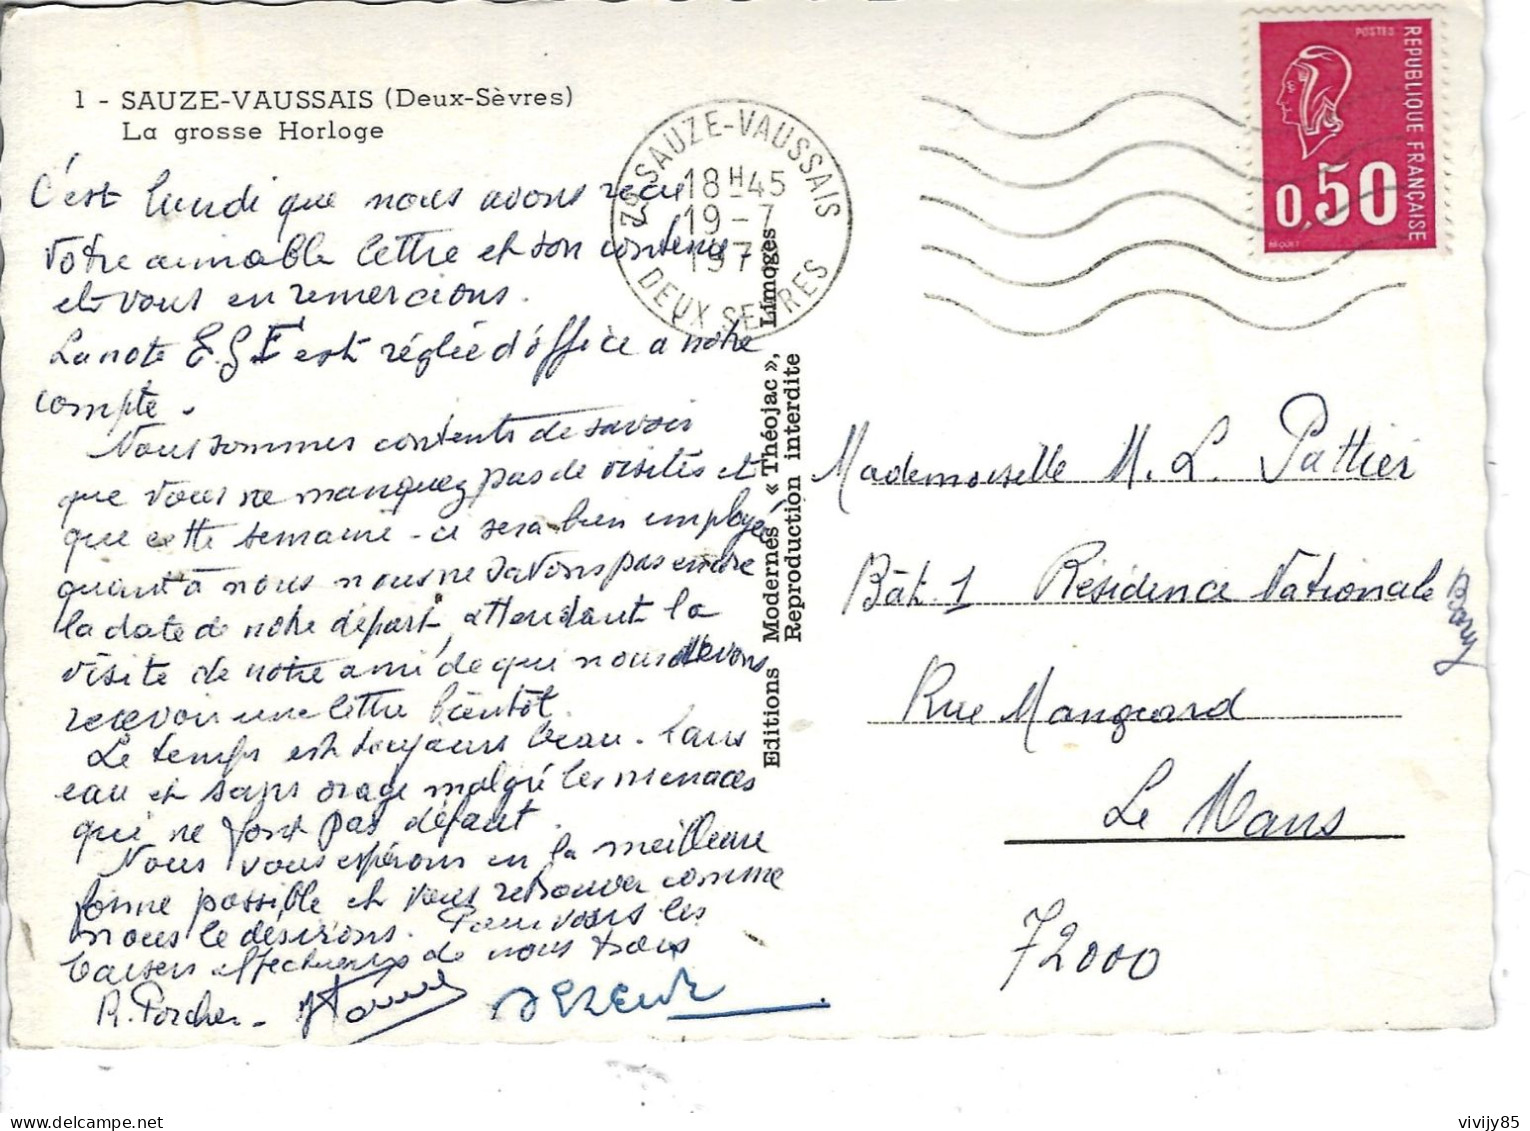 1 - SAUZE-VAUSSAIS (Deux-Sèvres)
La grosse Horloge
C'est lundi que nous avons reçu
votre aimable lettre et son contenu
et vous en remercions.
La note E.G.F est réglée d'office a notre
compte.
Nous sommes contents de savoir
que vous ne manquez pas de visites et
que cette semaine-ci sera bien employée
quant à nous nous ne savons pas encore
la date de notre départ, attendant la
visite de notre ami de qui nous devons
recevoir une lettre bientôt.
Le temps est toujours beau. Sans
eau et sans orage malgré les menaces
qui ne font pas défaut.
Nous vous espérons en la meilleure
forme possible et vous retrouver comme
nous le désirons. Pour vous les
baisers affectueux de nous trois
R. Porcher -
79 SAUZE-VAUSSAIS
18H45
19-7
197
DEUX SEVRES
Editions Modernes « Théojac », Limoges
Reproduction interdite
POSTES
REPUBLIQUE FRANÇAISE
0,50
BEQUET
Mademoiselle M. L. Pattier
Bât. 1 Résidence Nationale
Rue Mangeard
Le Mans
72000
vivijy85